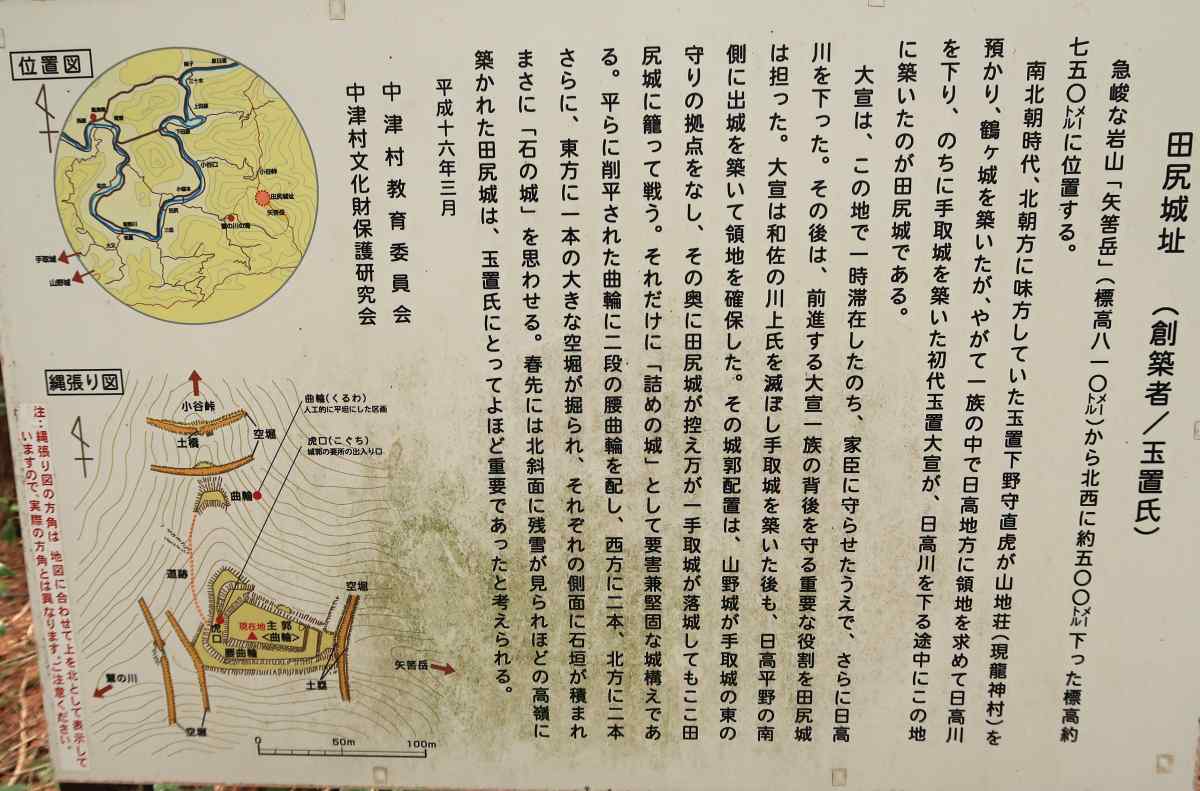 田尻城址 (創築者/玉置氏)
急峻な岩山「矢筈岳」(標高八一〇㍍)から北西に約五〇〇㍍下った標高約
七五〇㍍に位置する。
南北朝時代、北朝方に味方していた玉置下野守直虎が山地荘(現龍神村)を
預かり、鶴ヶ城を築いたが、やがて一族の中で日高地方に領地を求めて日高川
を下り、のちに手取城を築いた初代玉置大宣が、日高川を下る途中にこの地
に築いたのが田尻城である。
大宣は、この地で一時滞在したのち、家臣に守らせたうえで、さらに日高
川を下った。その後は、前進する大宣一族の背後を守る重要な役割を田尻城
は担った。大宣は和佐の川上氏を滅ぼし手取城を築いた後も、日高平野の南
側に出城を築いて領地を確保した。その城郭配置は、山野城が手取城の東の
守りの拠点をなし、その奥に田尻城が控え万が一手取城が落城してもここ田
尻城に籠って戦う。それだけに「詰めの城」として要害兼堅固な城構えであ
る。平らに削平された曲輪に二段の腰曲輪を配し、西方に二本、北方に二本
さらに、東方に一本の大きな空堀が掘られ、それぞれの側面に石垣が積まれ
まさに「石の城」を思わせる。春先には北斜面に残雪が見られほどの高嶺に
築かれた田尻城は、玉置氏にとってよほど重要であったと考えられる。
平成十六年三月
中津村教育委員会
中津村文化財保護研究会
位置図
小谷口
小谷峠
田尻城址
矢筈岳
鷲の川の滝
手取城
山野城
縄張り図
小谷峠
土橋
空堀
曲輪
曲輪(くるわ)
人工的に平坦にした区画
虎口(こぐち)
城郭の要所の出入り口
道跡
虎口
現在地
主郭
<曲輪>
腰曲輪
空堀
土塁
矢筈岳
鷲の川
空堀
0 50m 100m
注:縄張り図の方角は、地図に合わせて上を北として表示して
いますので、実際の方角とは異なります。ご注意ください。